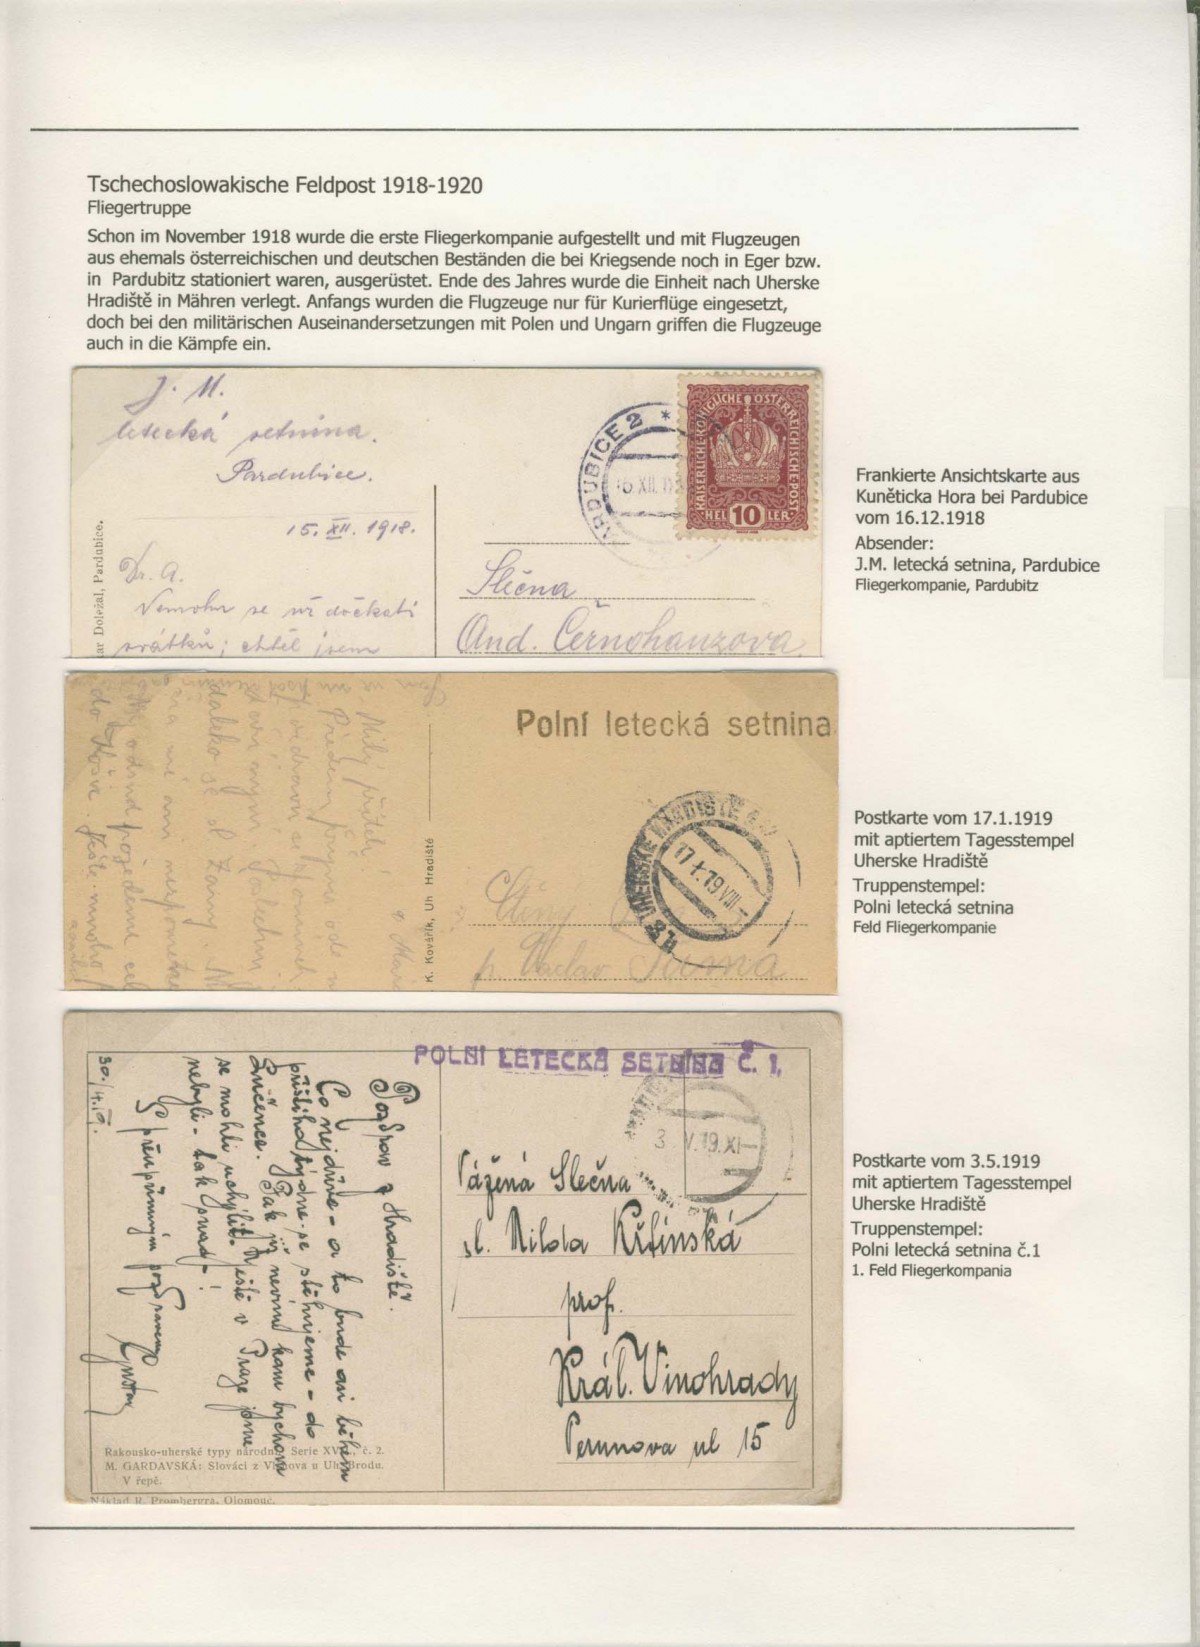 Tschechoslowakische Feldpost 1918-1920
Fliegertruppe
Schon im November 1918 wurde die erste Fliegerkompanie aufgestellt und mit Flugzeugen
aus ehemals österreichischen und deutschen Beständen die bei Kriegsende noch in Eger bzw.
in Pardubitz stationiert waren, ausgerüstet. Ende des Jahres wurde die Einheit nach Uherske
Hradiště in Mähren verlegt. Anfangs wurden die Flugzeuge nur für Kurierflüge eingesetzt,
doch bei den militärischen Auseinandersetzungen mit Polen und Ungarn griffen die Flugzeuge
auch in die Kämpfe ein.
J. M.
letecká setnina.
Pardubice.
15. XII. 1918.
Dr. A.
Nemohu se už dočkati
svátků; chtěl jsem
ar Doležal, Pardubice.
ARDUBICE 2 *
KAISERLICHE KÖNIGLICHE ÖSTERREICHISCHE POST
HEL 10 LER
Slečna
And. Černohauzova
Frankierte Ansichtskarte aus
Kunĕticka Hora bei Pardubice
vom 16.12.1918
Absender:
J.M. letecká setnina, Pardubice
Fliegerkompanie, Pardubitz
Polní letecká setnina
Milý příteli
K. Kovářík, Uh Hradiště
UHERSKÉ HRADIŠTĚ
17 I. 19 VIII
Václav
Postkarte vom 17.1.1919
mit aptiertem Tagesstempel
Uherske Hradiště
Truppenstempel:
Polni letecká setnina
Feld Fliegerkompanie
POLNÍ LETECKÁ SETNINA Č. 1.
3. V. 19. XI
30./4.19.
Pozdrav z Hradiště.
Co nejdříve - a to bude asi během
příštího týdne - se stěhujeme - do
Lučence. Pak již nevím kam bychom
se mohli uchýlit. Ještě v Praze jsme
nebyli - tak pravda!
S přeupřímným pozdravem
Vážená Slečna
sl. Milda Křtinská
prof.
Král. Vinohrady
Perunova ul 15
Rakousko-uherské typy národní. Serie XV , č. 2.
M. GARDAVSKÁ: Slováci z V nova u Uh. Brodu.
V řepě.
Náklad R. Prombergra, Olomouc.
Postkarte vom 3.5.1919
mit aptiertem Tagesstempel
Uherske Hradiště
Truppenstempel:
Polni letecká setnina č.1
1. Feld Fliegerkompania